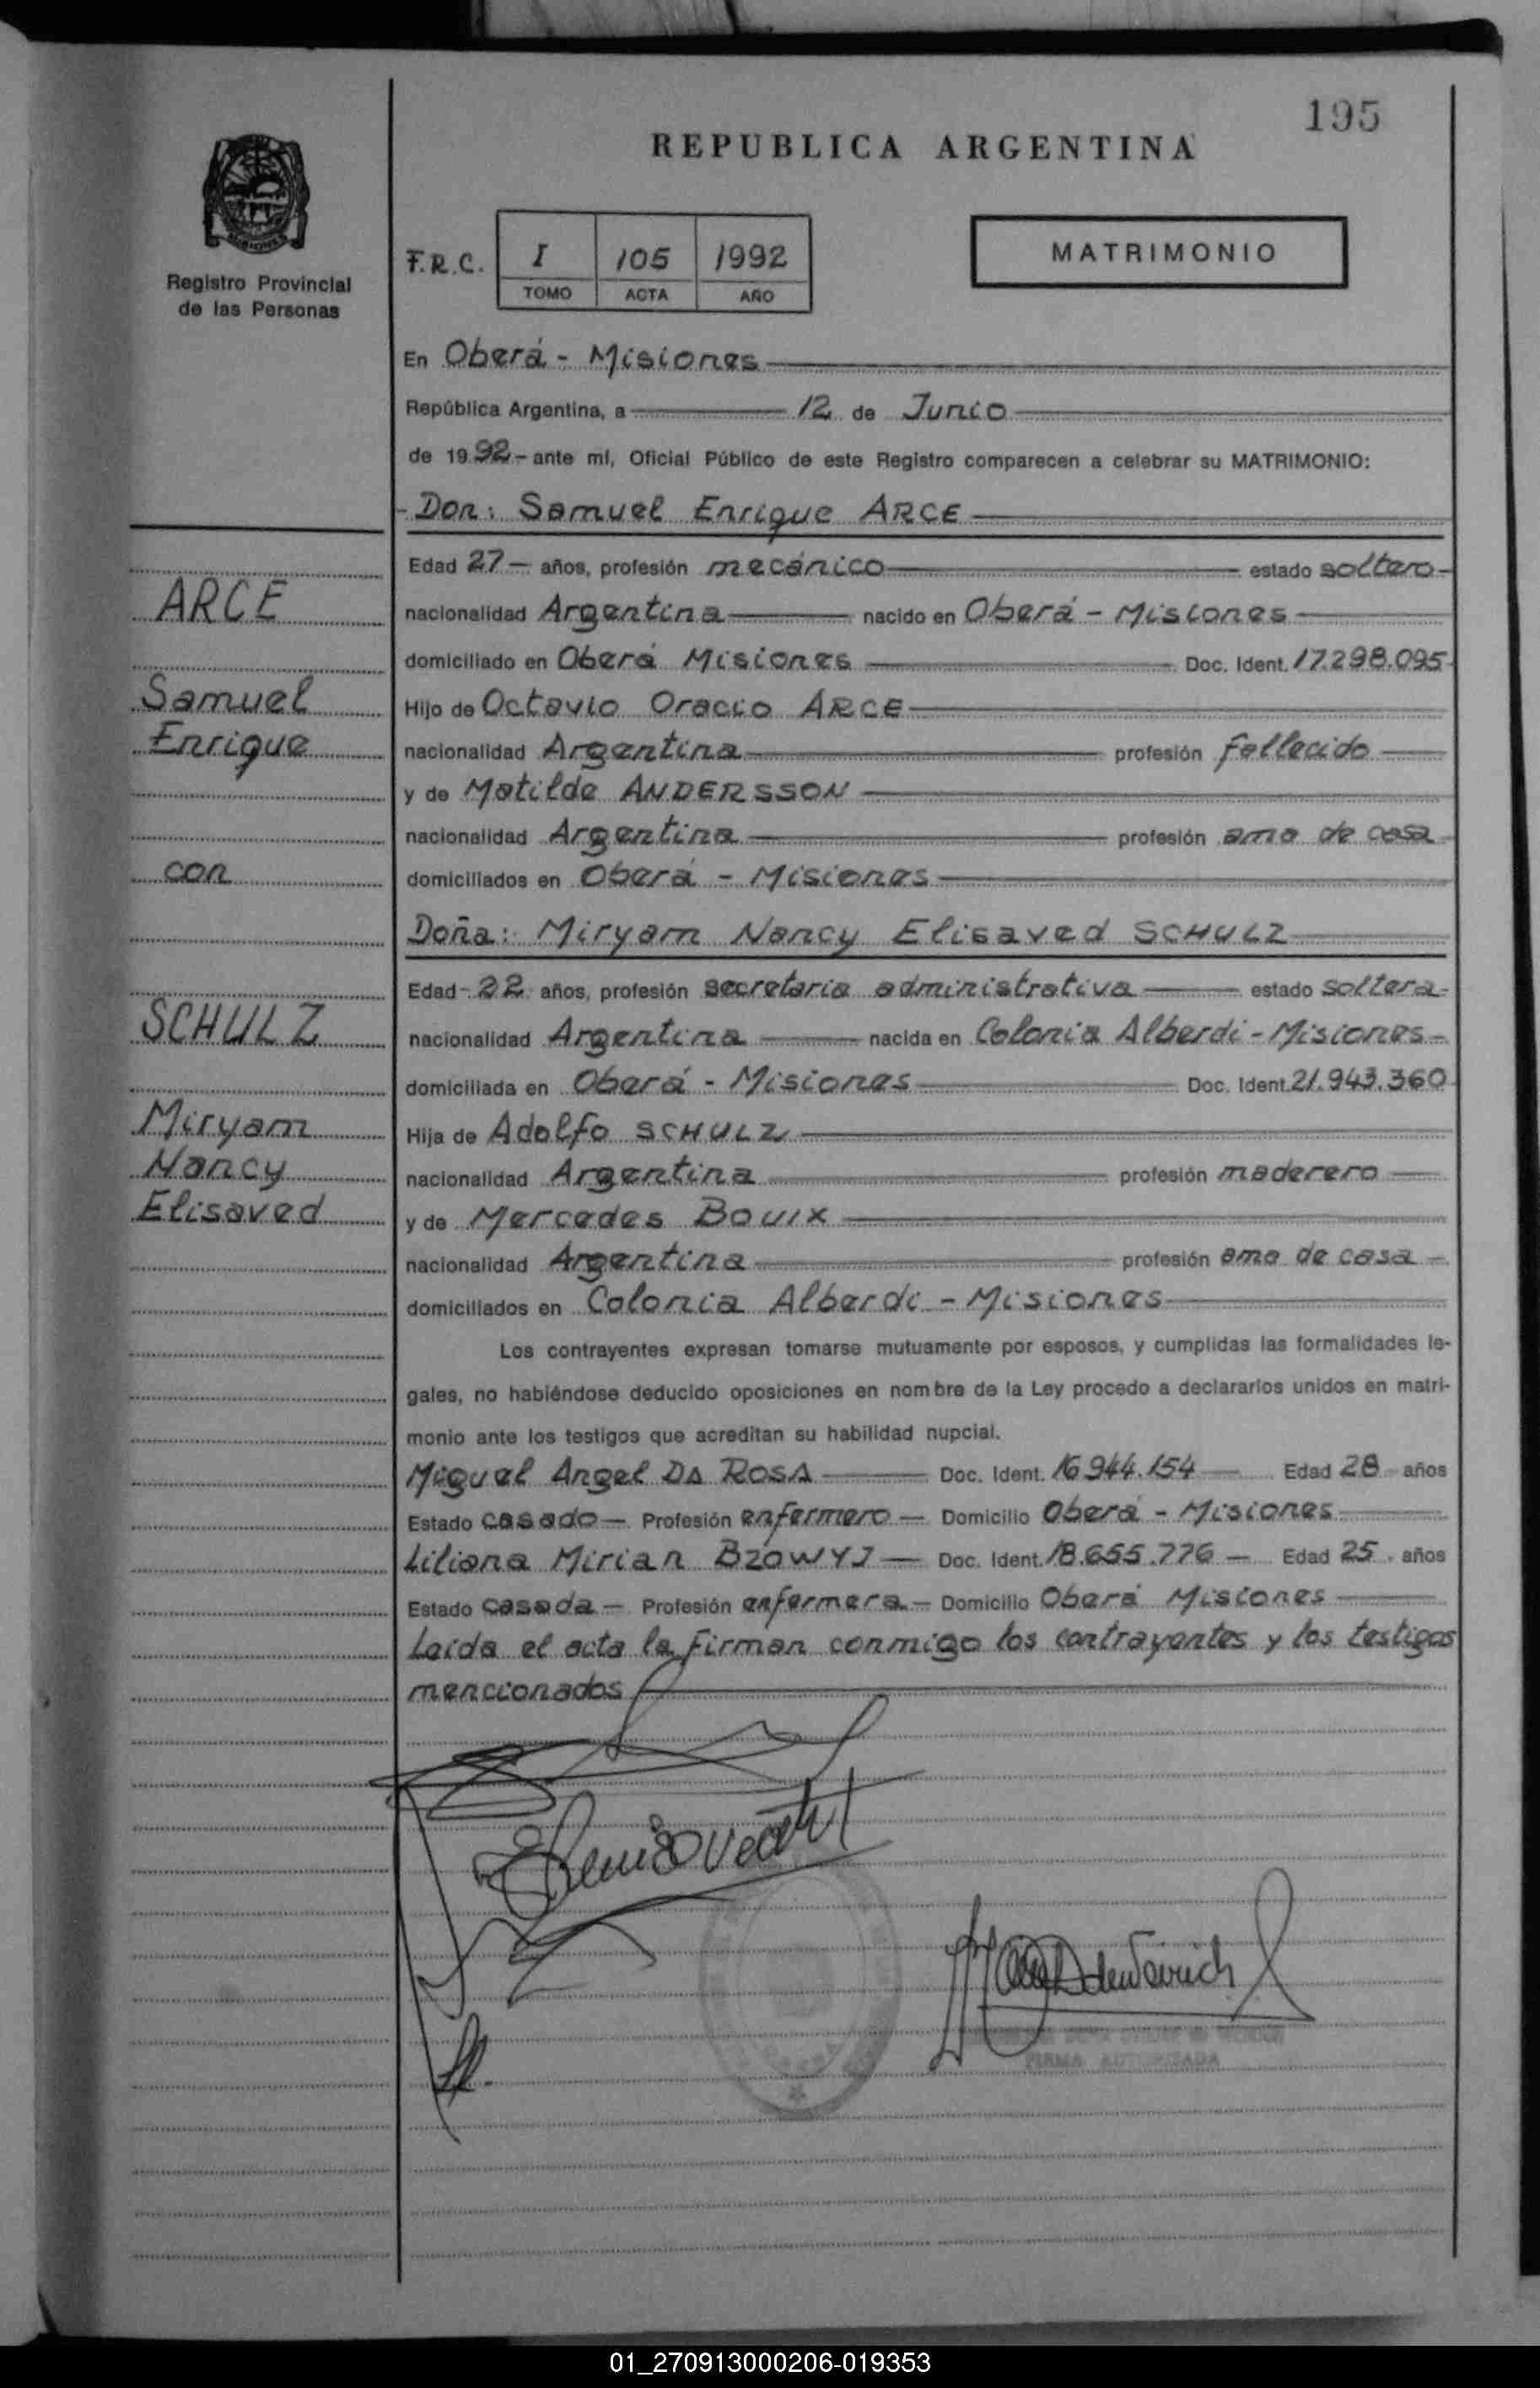 195
REPUBLICA ARGENTINA
MISIONES
Registro Provincial
de las Personas
F.R.C.
I 105 1992
TOMO ACTA AÑO
MATRIMONIO
En Oberá - Misiones
República Argentina, a 12 de Junio
de 1992 - ante mí, Oficial Público de este Registro comparecen a celebrar su MATRIMONIO:
- Don: Samuel Enrique ARCE
Edad 27 - años, profesión mecánico estado soltero -
ARCE
nacionalidad Argentina nacido en Oberá - Misiones
domiciliado en Oberá Misiones Doc. Ident. 17.298.095
Samuel
Hijo de Octavio Oracio ARCE
Enrique
nacionalidad Argentina profesión fallecido
y de Matilde ANDERSSON
nacionalidad Argentina profesión ama de casa
con
domiciliados en Oberá - Misiones
Doña: Miryam Nancy Elisaved SCHULZ
Edad - 22 años, profesión secretaria administrativa estado soltera -
SCHULZ
nacionalidad Argentina nacida en Colonia Alberdi - Misiones -
domiciliada en Oberá - Misiones Doc. Ident. 21.943.360
Miryam
Hija de Adolfo SCHULZ
Nancy
nacionalidad Argentina profesión maderero
Elisaved
y de Mercedes BOUIX
nacionalidad Argentina profesión ama de casa -
domiciliados en Colonia Alberdi - Misiones
Los contrayentes expresan tomarse mutuamente por esposos, y cumplidas las formalidades le-
gales, no habiéndose deducido oposiciones en nombre de la Ley procedo a declararlos unidos en matri-
monio ante los testigos que acreditan su habilidad nupcial.
Miguel Angel DA ROSA Doc. Ident. 16.944.154 Edad 28 años
Estado casado - Profesión enfermero - Domicilio Oberá - Misiones
Liliana Mirian BZOWYJ - Doc. Ident. 18.655.776 - Edad 25 . años
Estado casada - Profesión enfermera - Domicilio Oberá Misiones
Leída el acta la firman conmigo los contrayentes y los testigos
mencionados
FIRMA AUTORIZADA
01_270913000206-019353